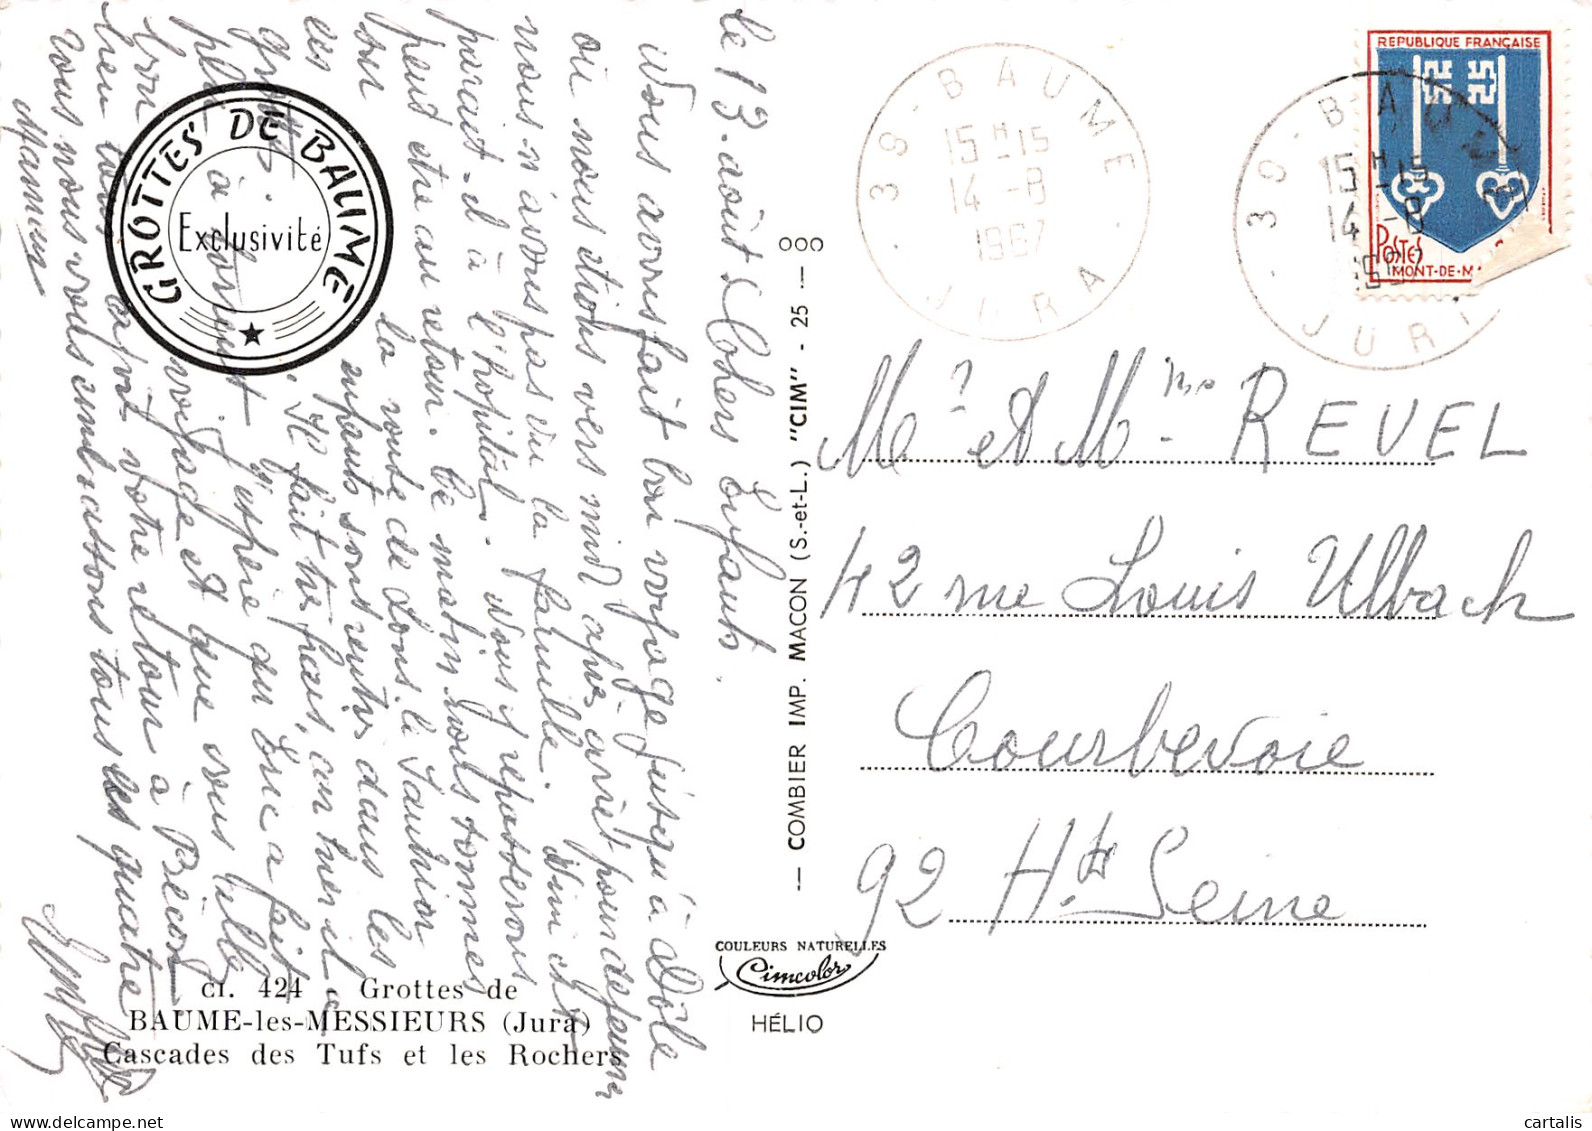 le 13 août Chers Enfants.
Nous avons fait bon voyage jusqu'à Dôle
où nous étions vers midi après arrêt pour déjeuner
nous n'avons pas vu la famille.
parait-il à l'hopital. Nous y repasserons
peut etre au retour. Ce matin nous sommes
sur la route de Lons. le Saunier
les enfants sont rentrés dans les
grottes. Il fait très frais, on met
à J'espère qu Eric a fait
bon voyage et que vous
bien votre retour à Bécon
nous nous vous embrassons tous les quatre
Maman
GROTTES DE BAUME
Exclusivité
CI. 424 - Grottes de
BAUME-les-MESSIEURS (Jura)
Cascades des Tufs et les Rochers
— COMBIER IMP. MACON (S.-et-L.) "CIM" - 25 —
COULEURS NATURELLES
Cimcolor
HÉLIO
39 - BAUME
15 H 15
14 - 8
1967
JURA
REPUBLIQUE FRANÇAISE
POSTES
MONT-DE-M
39 - BAUME
15 H 15
14 - 8
JURA
Mr et Mme REVEL
42 rue Louis Ulbach
Courbevoie
92 Hte Seine
cartalis